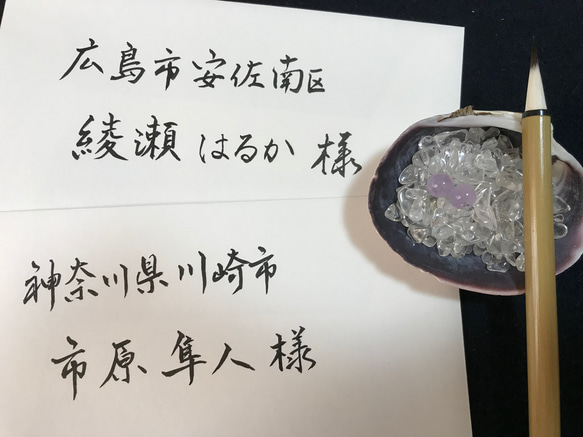 広島市安佐南区
綾瀬はるか 様
神奈川県川崎市
市原隼人様